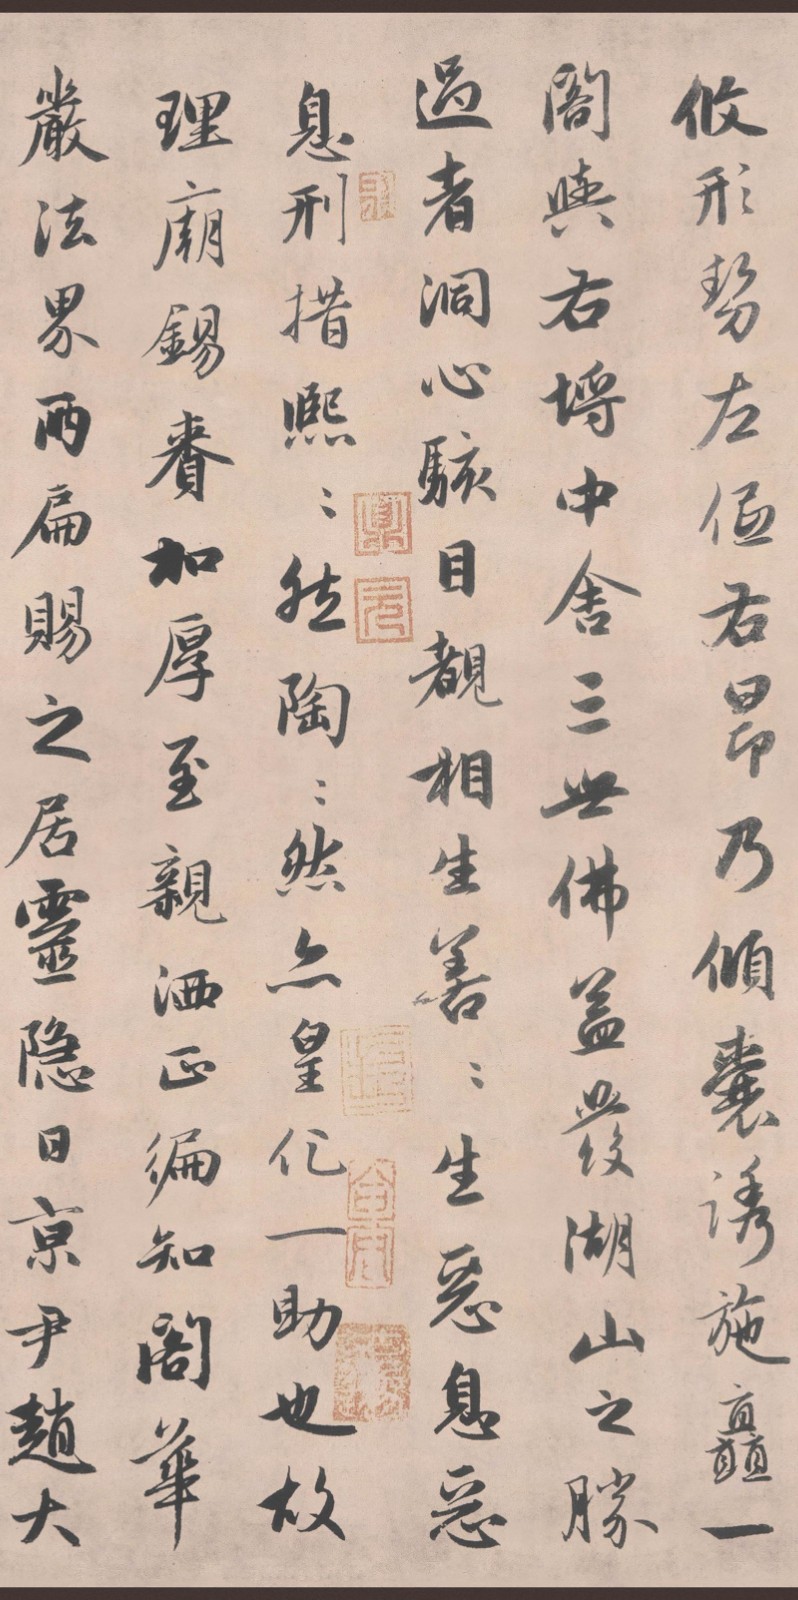 攸形勢左偃右昂乃傾囊誘施矗一
閣與右埒中舍三世佛蓋與發湖山之勝
過者洞心駭目覩相生善〻生惡息惡
息刑措熙〻然陶〻然亦皇化一助也故
理廟錫賚加厚至親洒正徧知閣華
嚴法界兩扁賜之居靈隱日京尹趙大